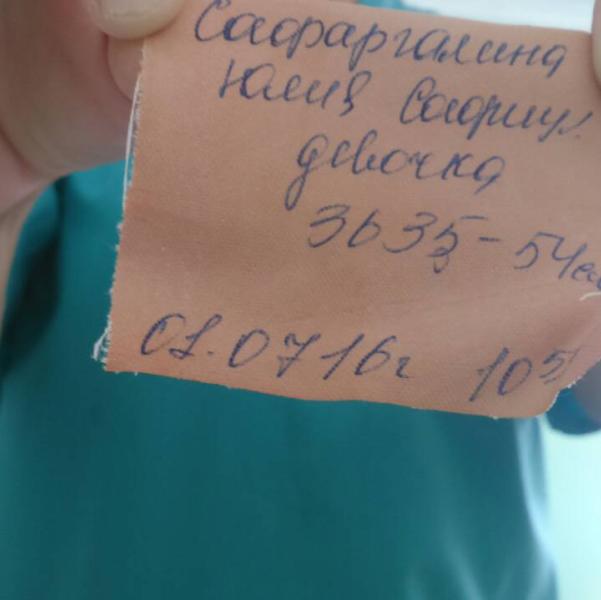 Сафаргалина
Юлия Сафиул
девочка
3635 - 54см
01.07 16г 10 5